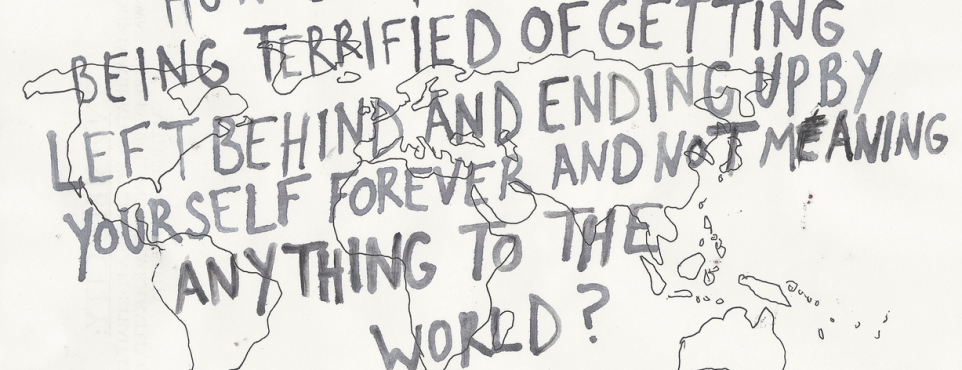 BEING TERRIFIED OF GETTING
LEFT BEHIND AND ENDING UP BY
YOURSELF FOREVER AND NOT MEANING
ANYTHING TO THE
WORLD?